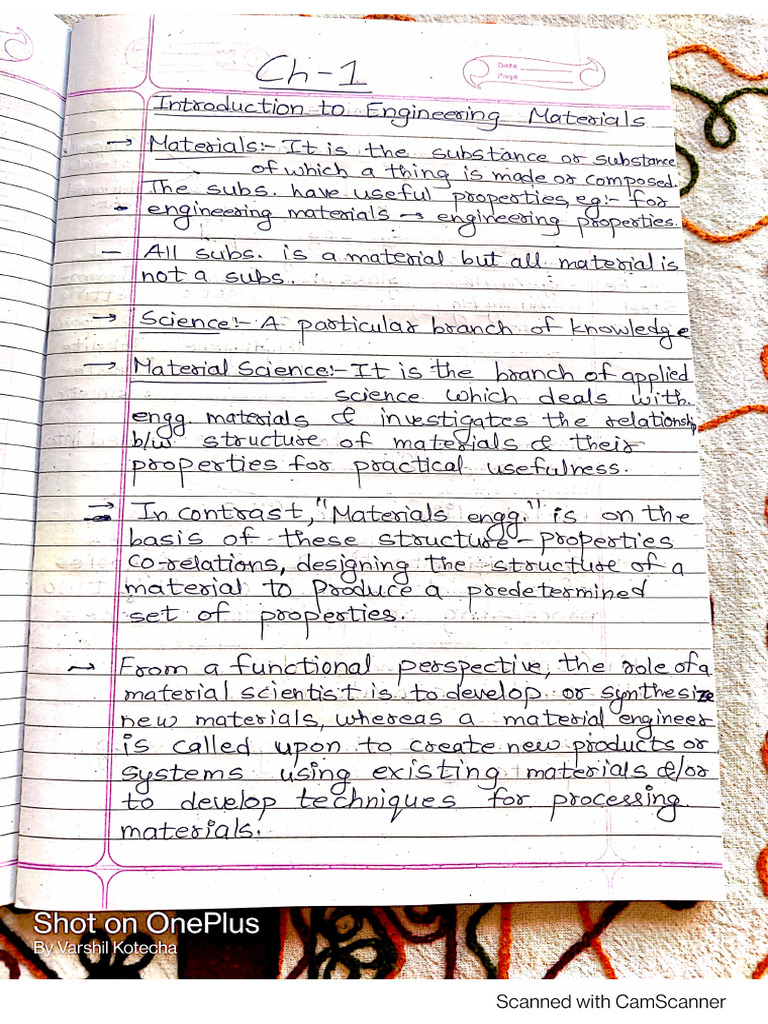 Ch-1
Date
Page
Introduction to Engineering Materials
→ Materials:- It is the substance or substance
of which a thing is made or composed.
The subs. have useful properties, eg:- for
- engineering materials → engineering properties.
- All subs. is a material but all material is
not a subs.
→ Science:- A particular branch of knowledge
→ Material Science:- It is the branch of applied
science which deals with
engg materials & investigates the relationship
b/w structure of materials & their
properties for practical usefulness.
→ In contrast, "Materials engg." is on the
basis of these structure-properties
co-relations, designing the structure of a
material to produce a predetermined
set of properties.
→ From a functional perspective, the role of a
material scientist is to develop or synthesize
new materials, whereas a material engineer
is called upon to create new products or
systems using existing materials &/or
to develop techniques for processing
materials.
Shot on OnePlus
By Varshil Kotecha
Scanned with CamScanner